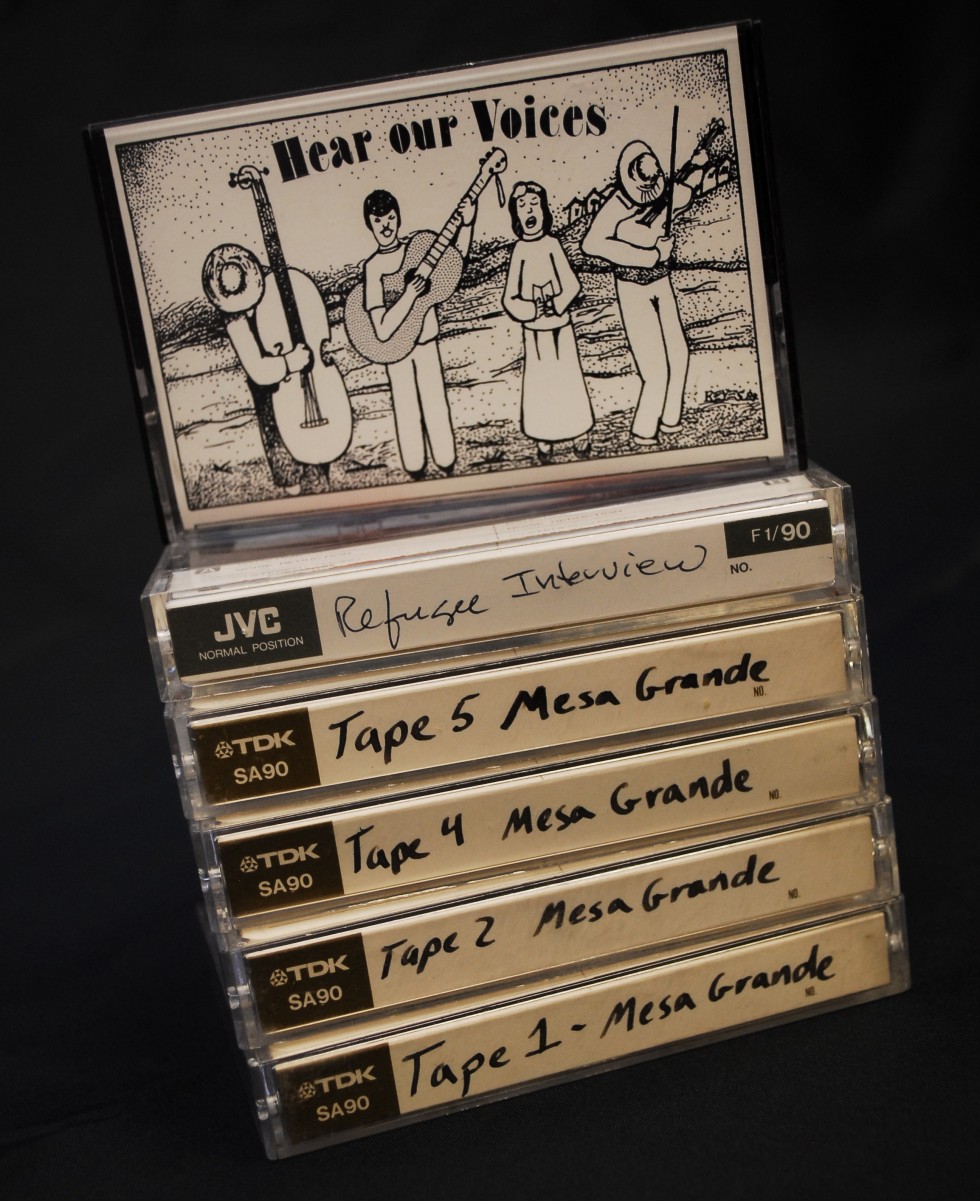 Hear our Voices
REYESA.
JVC
NORMAL POSITION
Refugee Interview
F1/90
NO.
TDK
SA90
Tape 5 Mesa Grande
NO.
TDK
SA90
Tape 4 Mesa Grande
NO.
TDK
SA90
Tape 2 Mesa Grande
NO.
TDK
SA90
Tape 1 - Mesa Grande
NO.